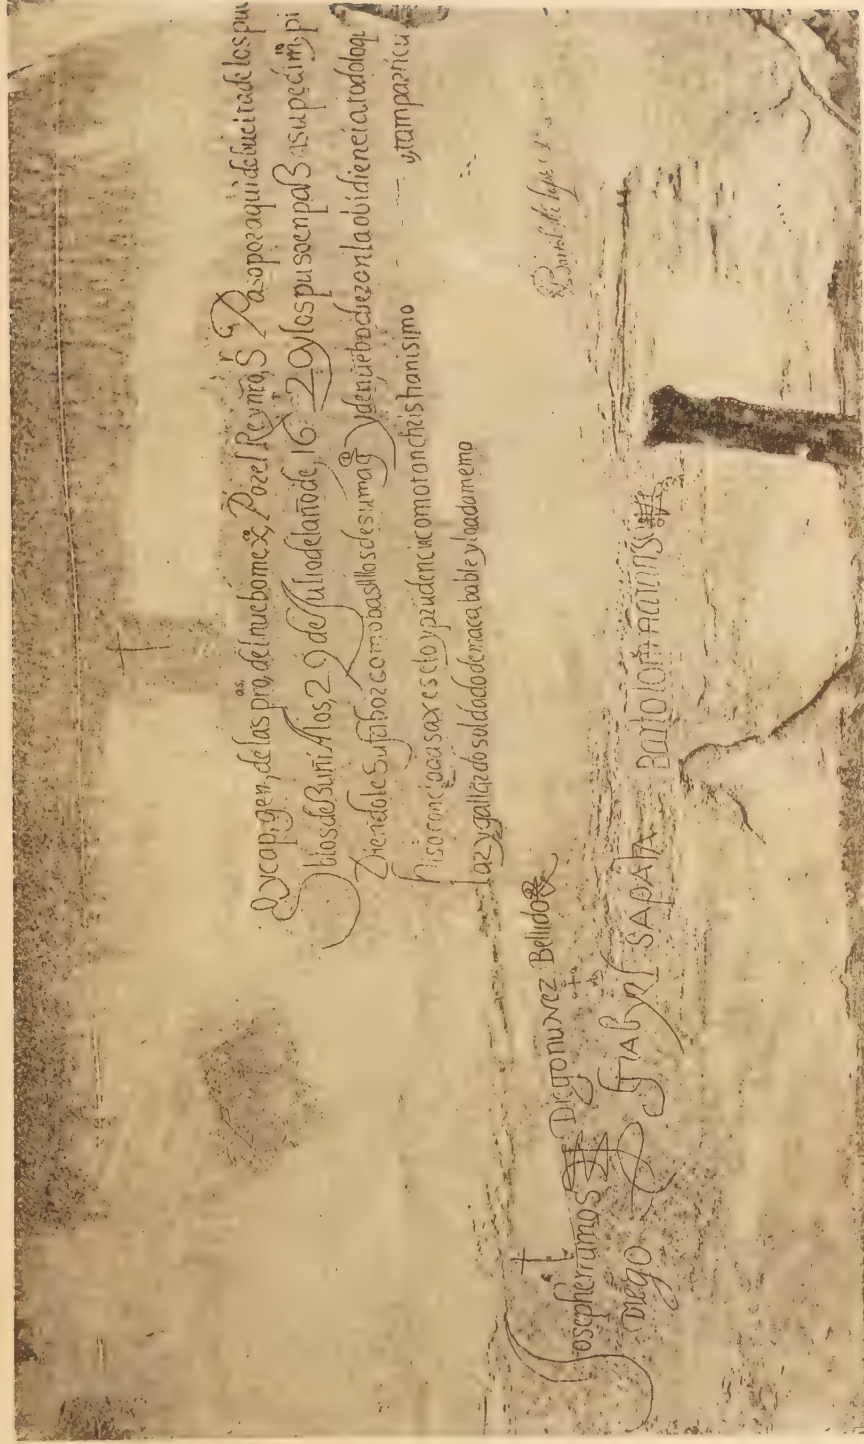 y cap, gen, de las pro,as del nuebo mex,co Por el Rey nro, Sr Paso por aqui de buelta de los pu
blos de Buñi A los, 29 de Julio del año de, 16 20 y los puso en paß a su pedimto, pi
Diendole Su fabor como basallos de su magd y de nuebo dieron la obidiencia todo lo q
hiso con el agasaxe selo y prudencia como tan christianisimo - - - - y tam particu
lar y gallardo soldado de inacabable y loada memo
Josepherramos Diego nunez Bellido
Diego Gabyel SAPATA Bartolome